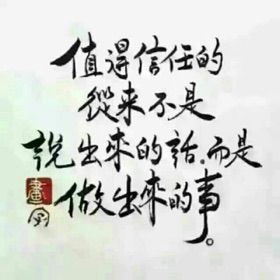 值得信任的
從来不是
說出來的話,而是
做出來的事。